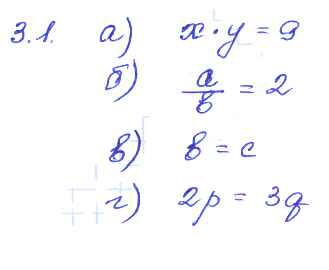 3.1. а) x · y = 9
б) a/b = 2
в) b = c
г) 2p = 3q